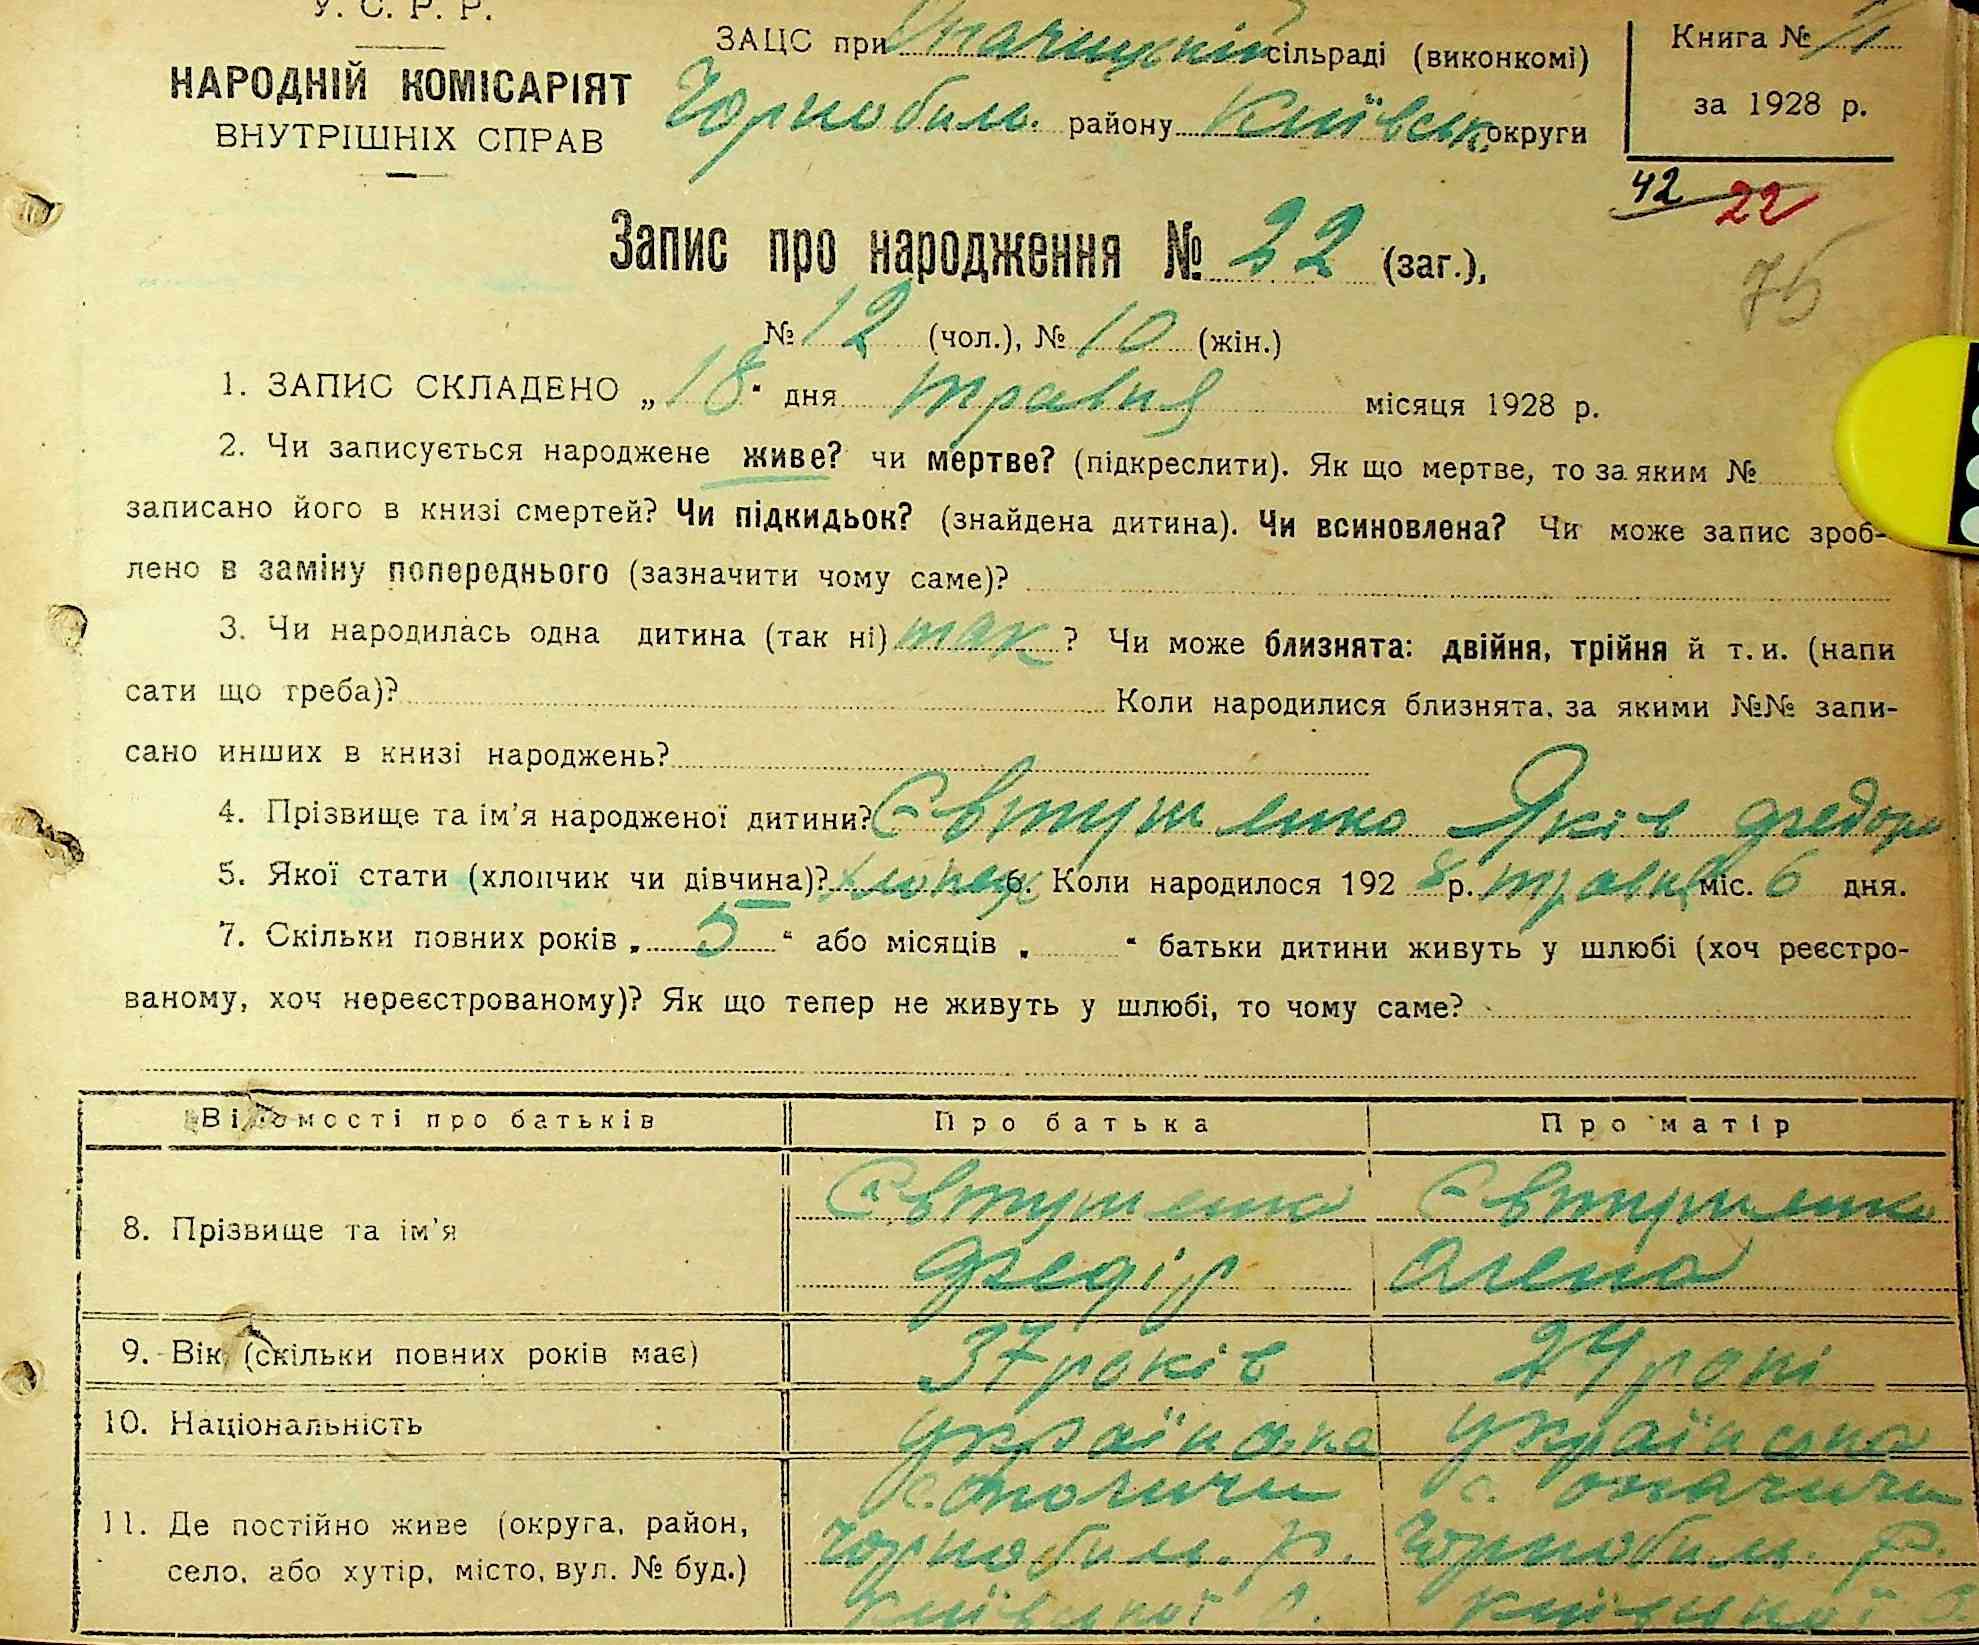 У. С. Р. Р.
НАРОДНІЙ КОМІСАРІЯТ
ВНУТРІШНІХ СПРАВ
ЗАЦС при Опачицькій сільраді (виконкомі)
Чорнобил. району Київськ. округи
Книга № II
за 1928 р.
42 22
75
Запис про народження № 22 (заг.),
№ 12 (чол.), № 10 (жін.)
1. ЗАПИС СКЛАДЕНО „ 18 “ дня травня місяця 1928 р.
2. Чи записується народжене живе? чи мертве? (підкреслити). Як що мертве, то за яким №
записано його в книзі смертей? Чи підкидьок? (знайдена дитина). Чи всиновлена? Чи може запис зроб-
лено в заміну попереднього (зазначити чому саме)?
3. Чи народилась одна дитина (так ні) так ? Чи може близнята: двійня, трійня й т. и. (напи
сати що треба)? Коли народилися близнята, за якими №№ запи-
сано инших в книзі народжень?
4. Прізвище та ім’я народженої дитини? Євтушенко Яків Федор
5. Якої стати (хлопчик чи дівчина)? хлопець 6. Коли народилося 192 8 р. травня міс. 6 дня.
7. Скільки повних років „ 5 “ або місяців „ “ батьки дитини живуть у шлюбі (хоч реєстро-
ваному, хоч нереєстрованому)? Як що тепер не живуть у шлюбі, то чому саме?
Відомості про батьків Про батька Про матір
8. Прізвище та ім’я Євтушенко Євтушенко
Федір Олена
9. Вік (скільки повних років має) 37 років 24 рокі
10. Національність українська українська
с. Опачичи с. Опачичи
11. Де постійно живе (округа, район, Чорнобил. р. Чорнобил. р.
село, або хутір, місто, вул. № буд.)
Київської о. Київської о.